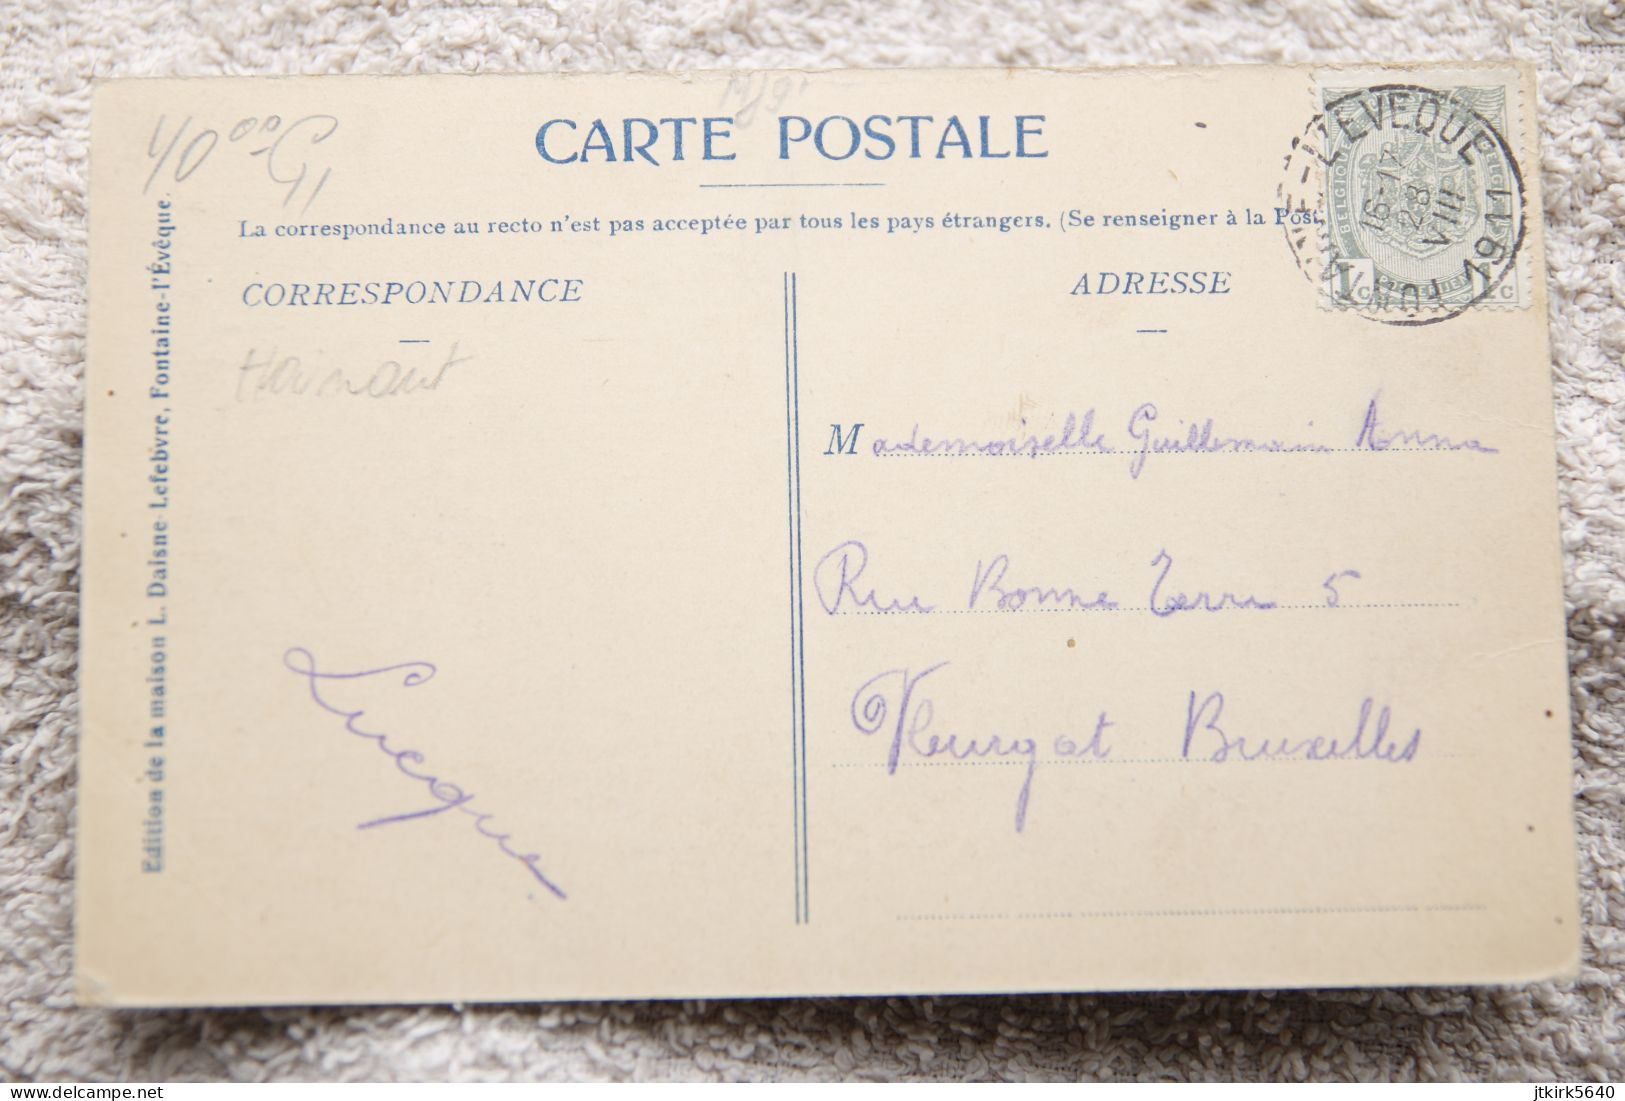 CARTE POSTALE
La correspondance au recto n'est pas acceptée par tous les pays étrangers. (Se renseigner à la Post
CORRESPONDANCE
Hainaut
Lucque
ADRESSE
Mademoiselle Guillemain Anna
Rue Bonne Terre 5
Vleurgat Bruxelles
Edition de la maison L. Daisne-Lefebvre, Fontaine-l'Évêque.
L'EVEQUE
16-17
28
VIII
1911
BELGIQUE
1 c
1 c
jtkirk5640